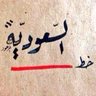 السعودية
خط